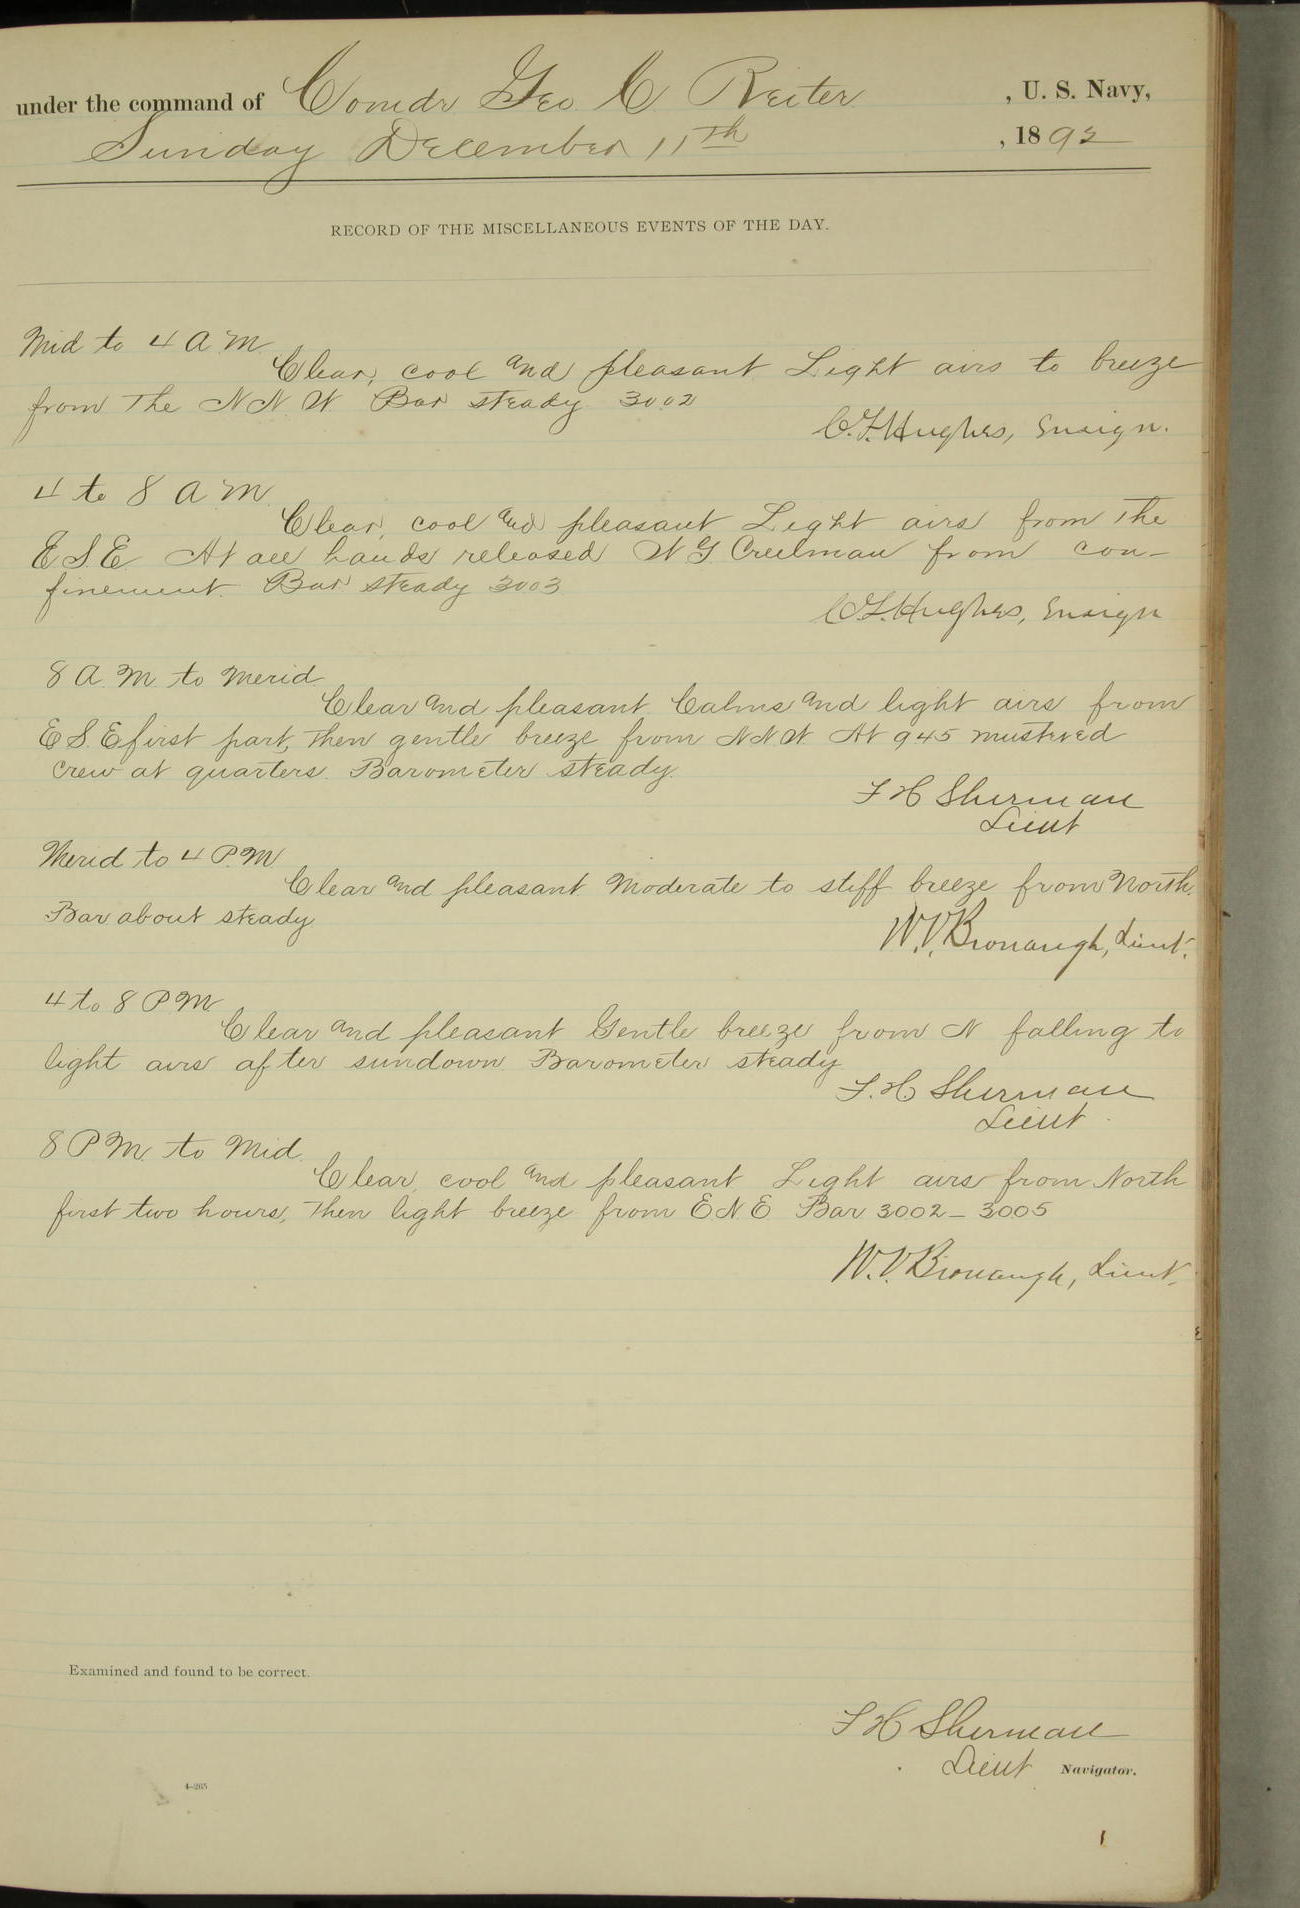 under the command of Comdr Geo. C. Reiter , U. S. Navy,
Sunday December 11th , 1892
RECORD OF THE MISCELLANEOUS EVENTS OF THE DAY.
Mid to 4 A.M.
Clear, cool and pleasant Light airs to breeze
from the N N W Bar steady 30.02
C.F. Hughes, Ensign.
4 to 8 A.M.
Clear, cool and pleasant Light airs from the
E S E At all hands released W G Creelman from con-
finement. Bar steady 3003
C.F. Hughes, Ensign
8 A. M. to Merid.
Clear and pleasant. Calms and light airs from
E S. E first part, then gentle breeze from N N W At 945 mustered
crew at quarters. Barometer steady.
F H Sherman
Lieut
Merid to 4 P.M.
Clear and pleasant Moderate to stiff breeze from North.
Bar about steady
W. V. Bronaugh, Lieut.
4 to 8 P M.
Clear and pleasant Gentle breeze from N falling to
light airs after sundown Barometer steady
F. H. Sherman
Lieut.
8 P M. to Mid.
Clear, cool and pleasant Light airs from North
first two hours, then light breeze from E N. E Bar 3002 - 3005
W. V. Bronaugh, Lieut.
Examined and found to be correct.
F H Sherman
Lieut Navigator.
4—265